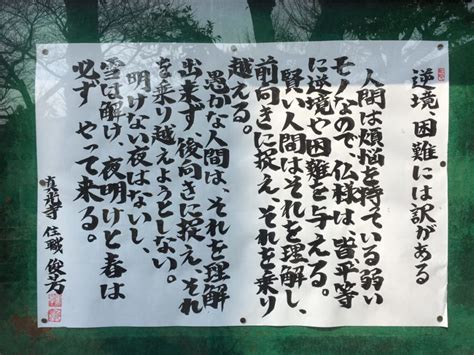 逆境 困難には訳がある
人間は煩悩を持ている弱い
モノなので、仏様は、皆平等
に逆境や困難を与える。
賢い人間はそれを理解し、
前向きに捉え、それを乗り
越える。
愚かな人間は、それを理解
出来ず、後向きに捉え、それ
を乗り越えようとしない。
明けない夜はないし、
雪は解け、夜明けと春は
必ず やって来る。
住職